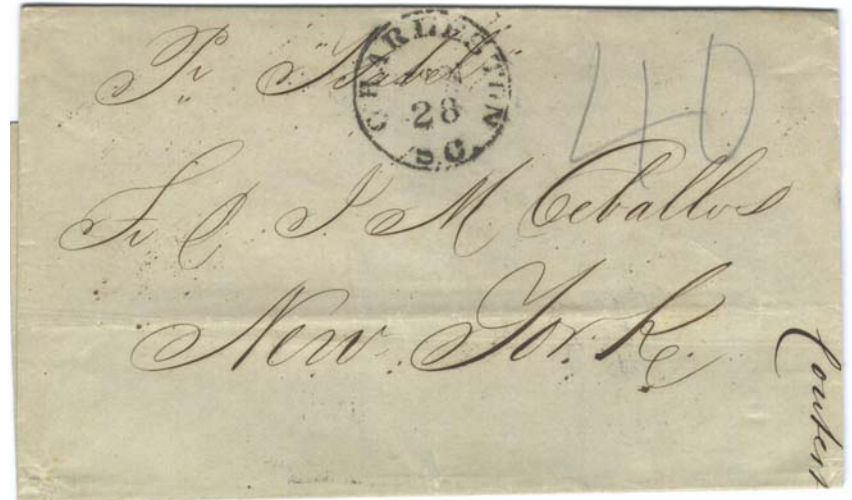 Pr "Isabel"
CHARLESTON
28
S.C.
40
J M Ceballos
New York